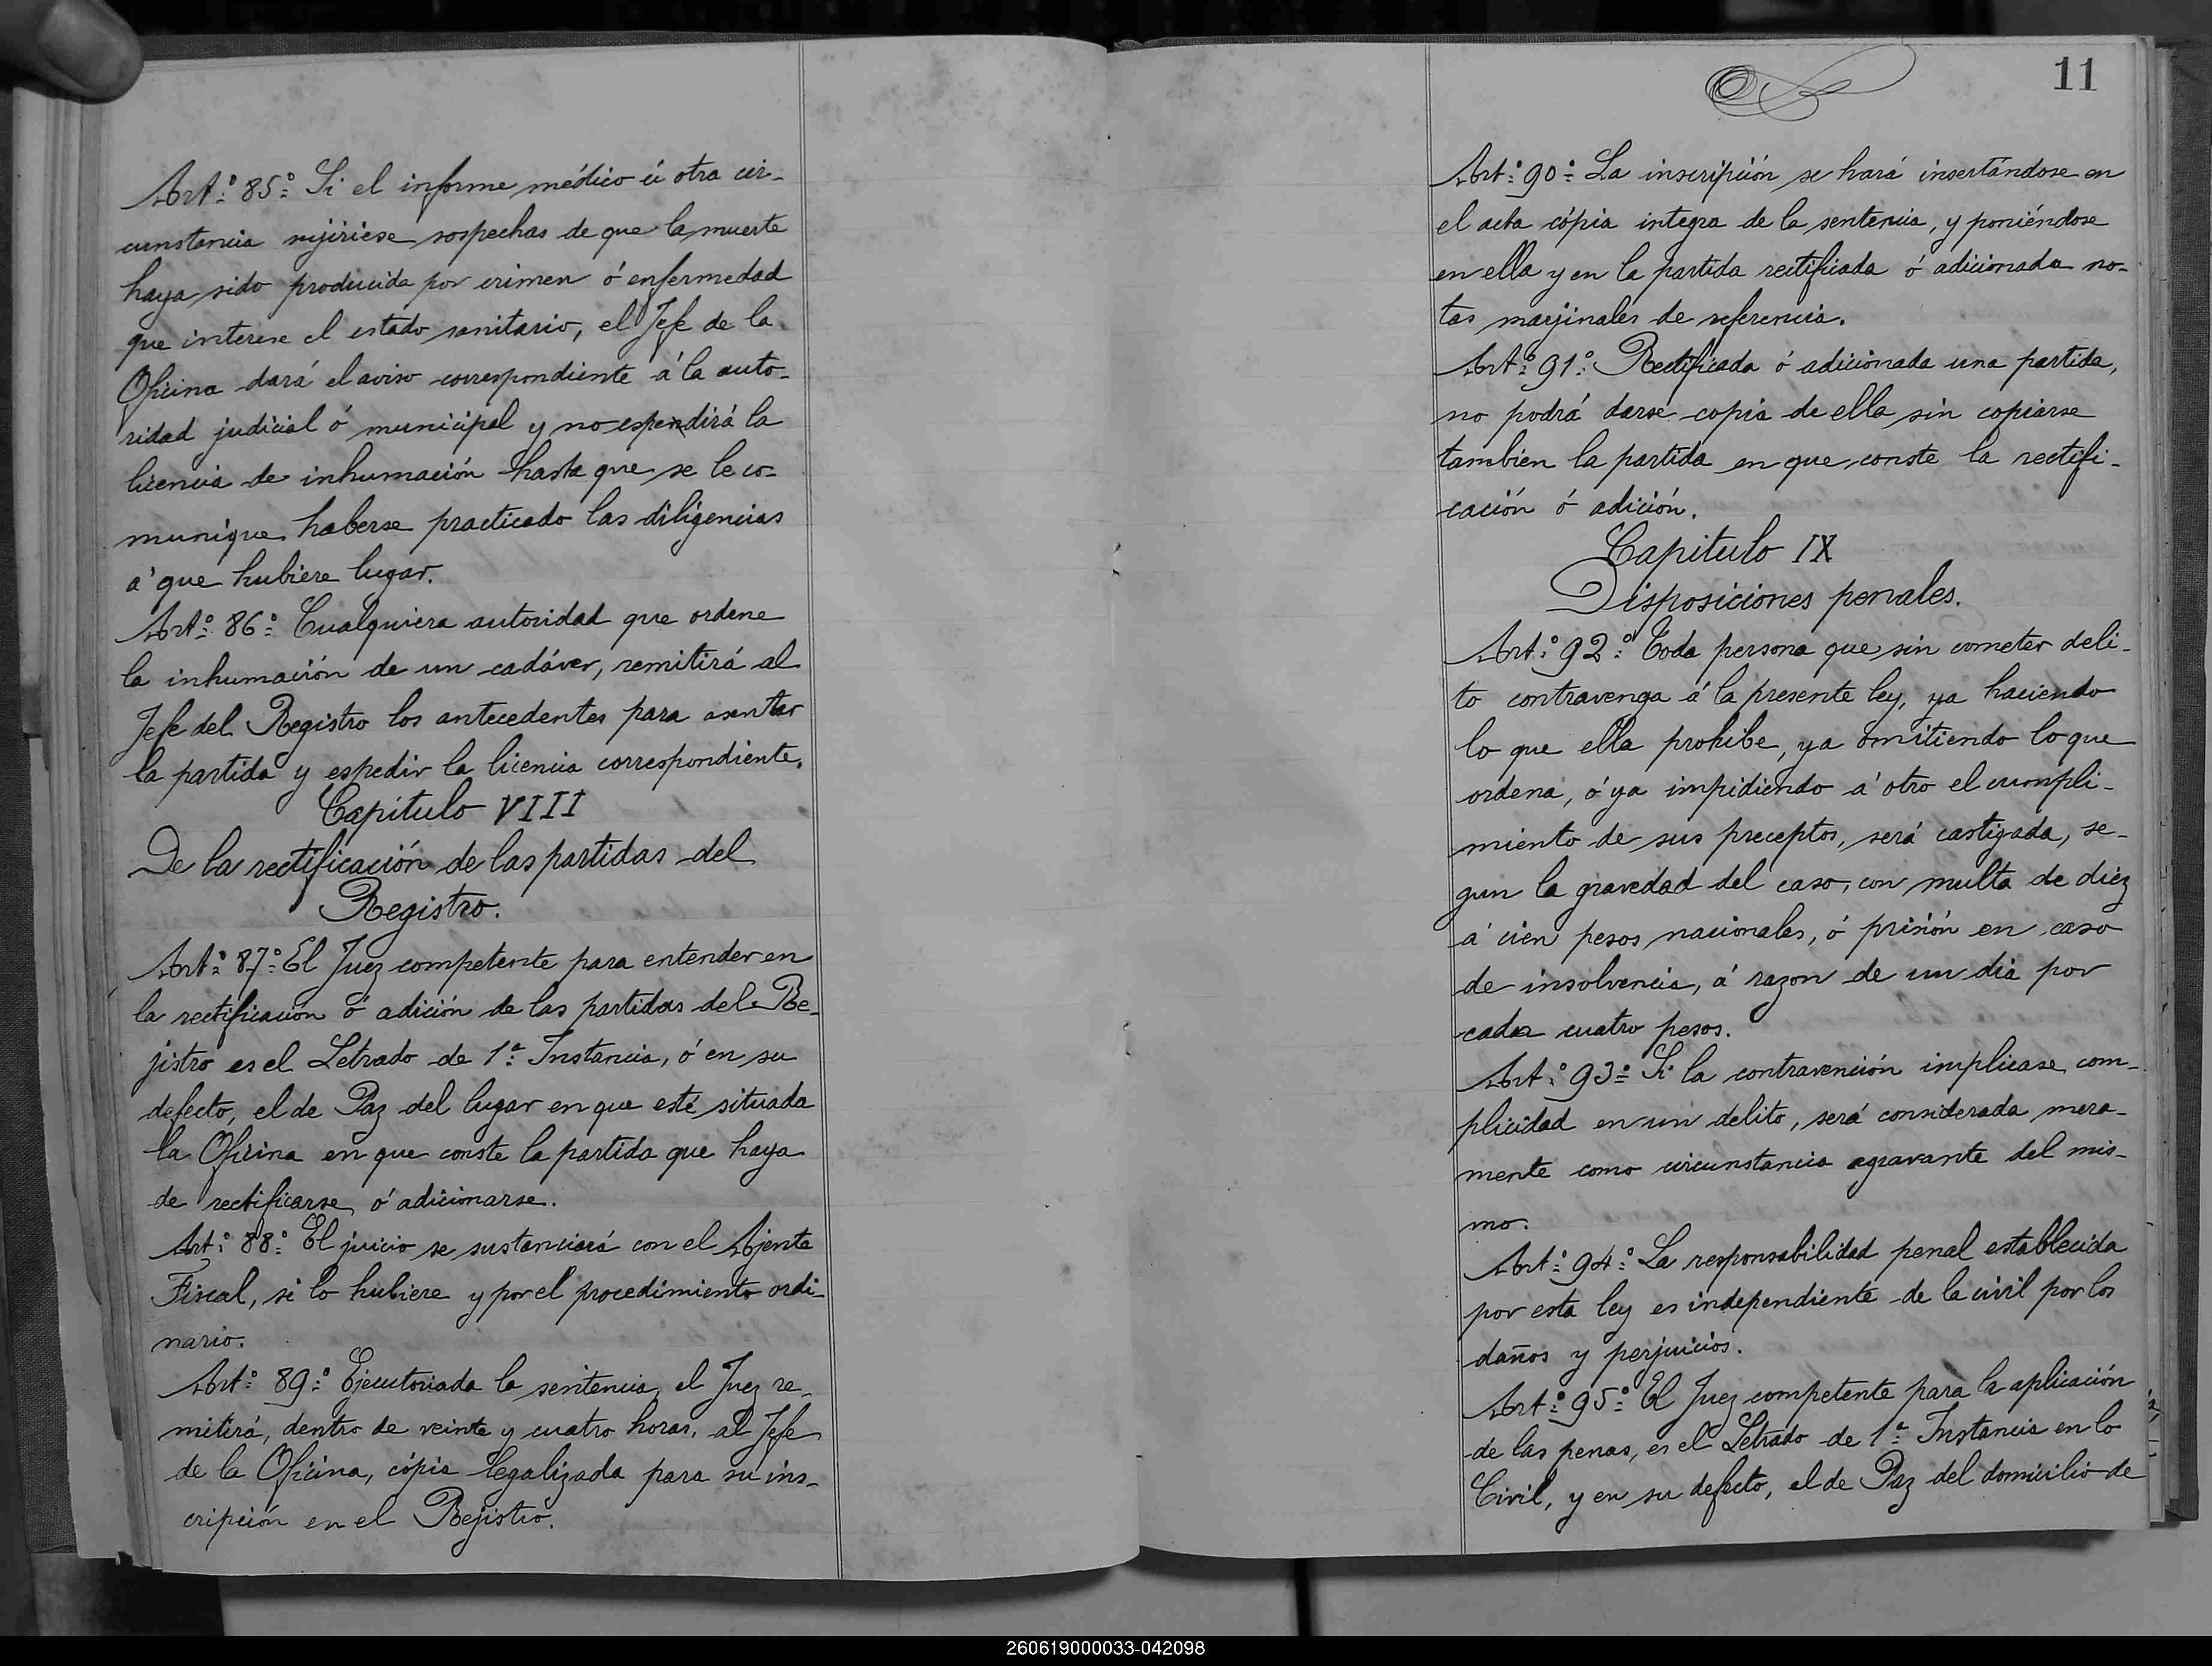 Art.º 85.º Si el informe médico ú otra cir-
cunstancia sujiriese sospechas de que la muerte
haya sido producida por crimen ó enfermedad
que interese el estado sanitario, el Jefe de la
Oficina dará el aviso correspondiente á la auto-
ridad judicial ó municipal y no espendirá la
licencia de inhumación hasta que se le co-
munique haberse practicado las diligencias
á que hubiere lugar.
Art.º 86.º Cualquiera autoridad que ordene
la inhumación de un cadáver, remitirá al
Jefe del Registro los antecedentes para asentar
la partida y espedir la licencia correspondiente.
Capítulo VIII
De la rectificación de las partidas del
Registro.
Art.º 87.º El Juez competente para entender en
la rectificacion ó adición de las partidas del Re-
jistro es el Letrado de 1.ª Instancia, ó en su
defecto, el de Paz del lugar en que esté situada
la Oficina en que conste la partida que haya
de rectificarse ó adicionarse.
Art.º 88.º El juicio se sustanciará con el Ajente
Fiscal, si lo hubiere y por el procedimiento ordi-
nario.
Art.º 89.º Ejecutoriada la sentencia, el Juez re-
mitirá, dentro de veinte y cuatro horas, al Jefe
de la Oficina, cópia legalizada para su ins-
cripción en el Rejistro.
11
Art.º 90.º La inscripción se hará insertándose en
el acta cópia integra de la sentencia, y poniéndose
en ella y en la partida rectificada ó adicionada no-
tas marjinales de referencia.
Art.º 91.º Rectificada ó adicionada una partida,
no podrá darse copia de ella sin copiarse
tambien la partida en que conste la rectifi-
cación ó adición.
Capitulo IX
Disposiciones penales.
Art.º 92.º Toda persona que sin cometer deli-
to contravenga á la presente ley, ya haciendo
lo que ella prohibe, ya omitiendo lo que
ordena, ó ya impidiendo á otro el cumpli-
miento de sus preceptos, será castigada, se-
gun la gravedad del caso, con multa de diez
á cien pesos nacionales, ó prisión en caso
de insolvencia, á razon de un dia por
cada cuatro pesos.
Art.º 93.º Si la contravención implicase com-
plicidad en un delito, será considerada mera-
mente como circunstancia agravante del mis-
mo.
Art.º 94.º La responsabilidad penal establecida
por esta ley es independiente de la civil por los
daños y perjuicios.
Art.º 95.º El Juez competente para la aplicación
de las penas, es el Letrado de 1.ª Instancia en lo
Civil, y en su defecto, el de Paz del domicilio de
260619000033-042098